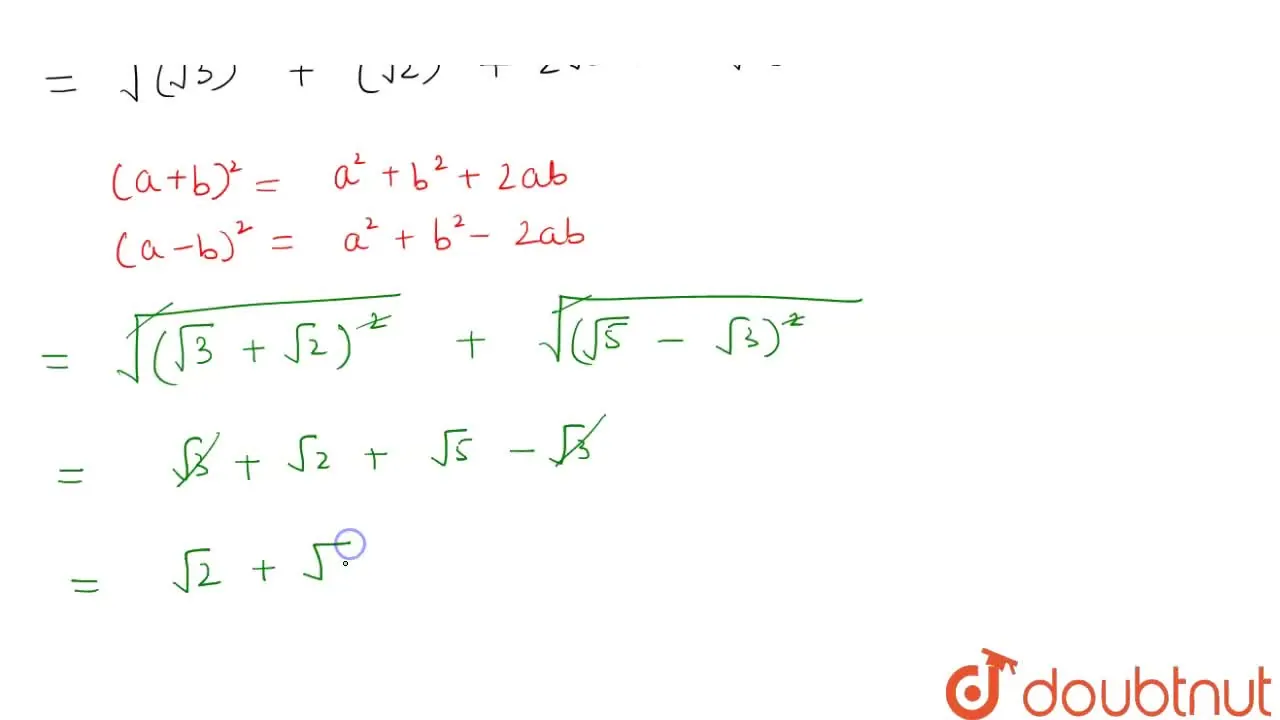 = √(√3) + (√2) + 2√
(a+b)² = a² + b² + 2ab
(a-b)² = a² + b² - 2ab
= √(√3 + √2)² + √(√5 - √3)²
= √3 + √2 + √5 - √3
= √2 + √
doubtnut